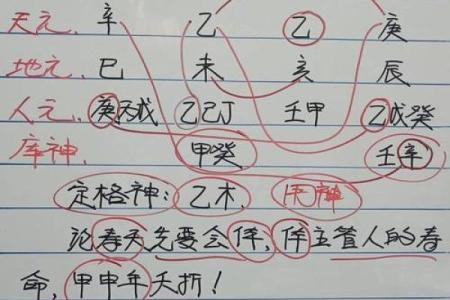 天元、辛 乙 乙 庚
地元、巳 未 亥 辰
人元、庚丙戊 乙己丁 壬甲 乙戊癸
库神、 甲癸 壬辛
定格神:乙木、
论春天先要会体,体主管人的春
命,甲申年夭折!